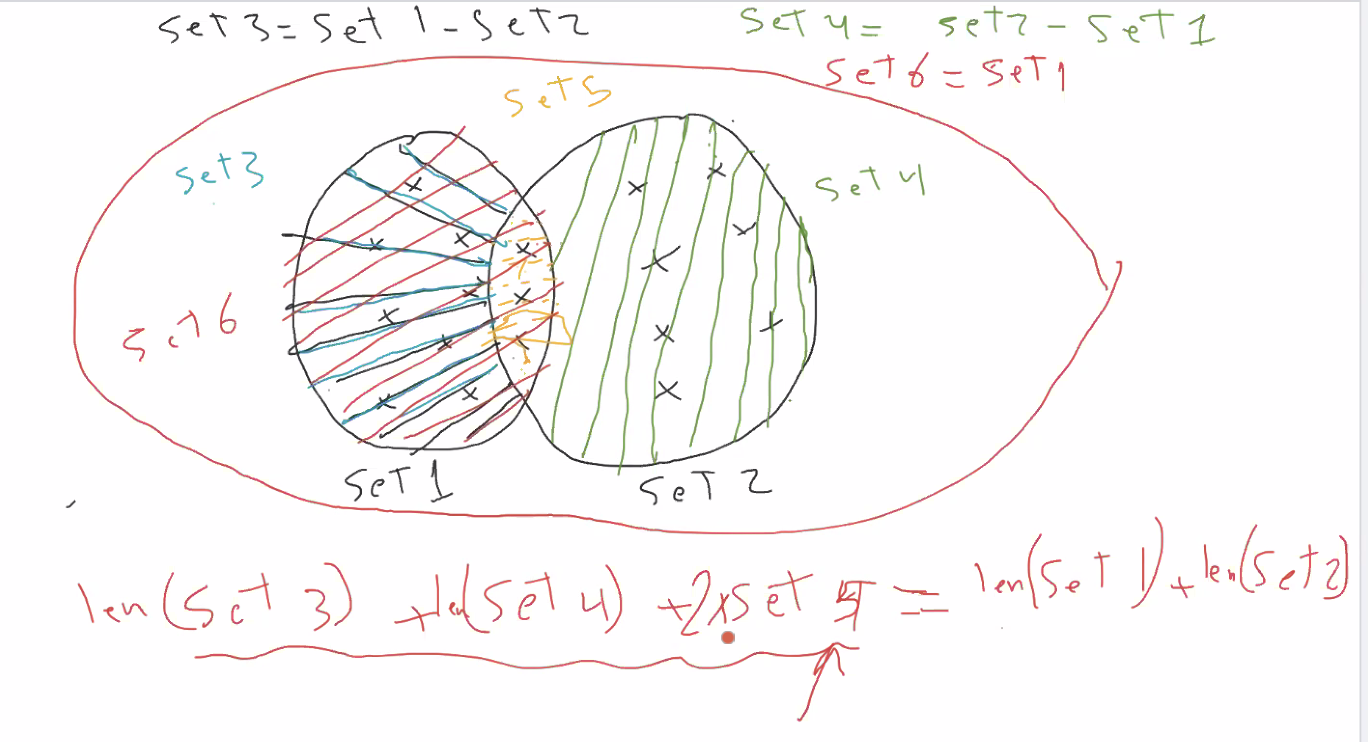 set 3 = set 1 - set 2
set 4 = set 2 - set 1
set 6 = set 1
set 5
set 3
set 4
set 6
set 1
set 2
len(set 3) + len(set 4) + 2xset 5 = len(set 1) + len(set 2)